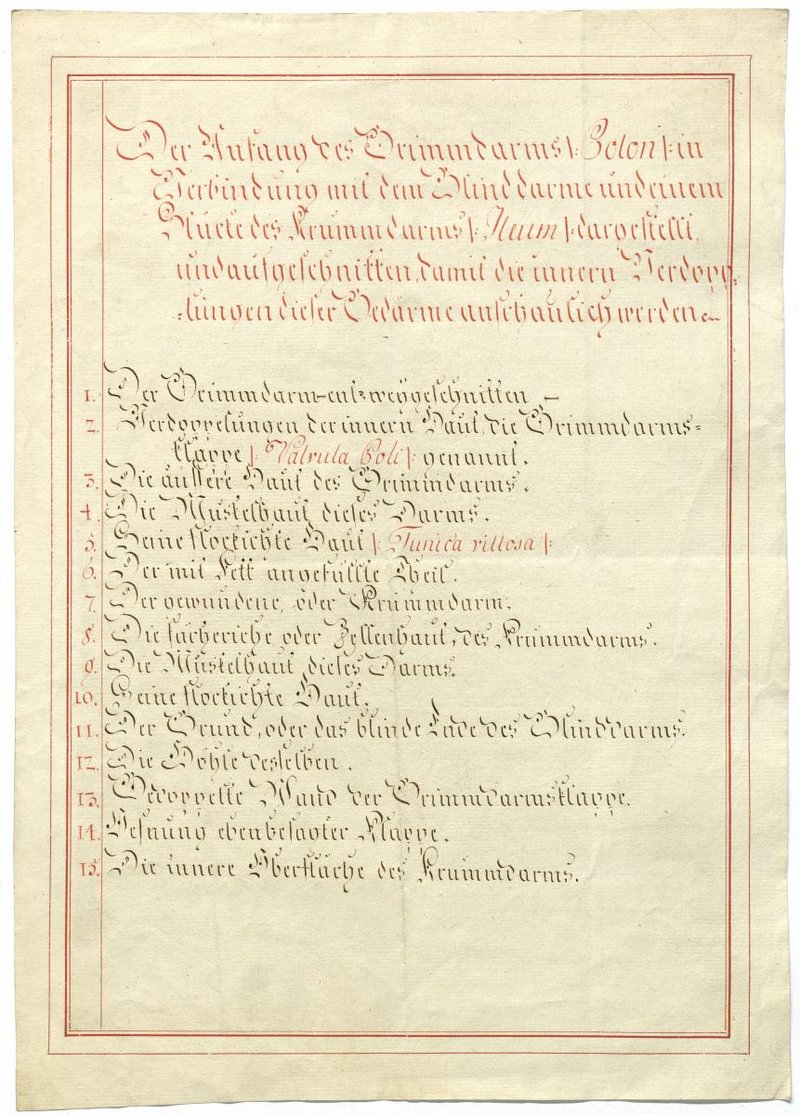 Der Anfang des Grimmdarms /: Colon :/ in
Verbindung mit dem Blinddarme und einem
Stücke des Krummdarms /: Ileum :/ dargestellt,
und aufgeschnitten, damit die innern Verdopp-
-lungen dieser Gedärme anschaulich werden.
1. Der Grimmdarm entzweygeschnitten —
2. Verdoppelungen der innern Haut, die Grimmdarms-
klappe /: Valvula Coli :/ genannt.
3. Die äussere Haut des Grimmdarms.
4. Die Muskelhaut dieses Darms.
5. Seine flockichte Haut /: Tunica villosa :/
6. Der mit Fett angefüllte Theil.
7. Der gewundene, oder Krummdarm.
8. Die fächeriche oder Zellenhaut, des Krummdarms.
9. Die Muskelhaut dieses Darms.
10. Seine flockichte Haut.
11. Der Grund, oder das blinde Ende des Blinddarms.
12. Die Höhle desselben.
13. Gedoppelte Wand der Grimmdarmsklappe.
14. Oefnung ebenbesagter Klappe.
15. Die innere Oberfläche des Krummdarms.